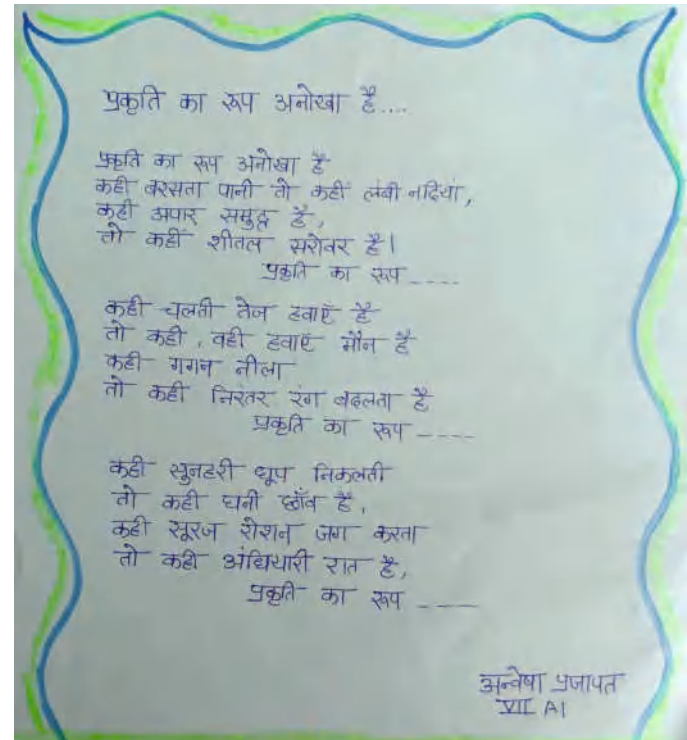 प्रकृति का रूप अनोखा है....
प्रकृति का रूप अनोखा है
कही बरसता पानी तो कहीं लंबी नदियां,
कही अपार समुद्र है,
तो कहीं शीतल सरोवर है।
प्रकृति का रूप -----
कही चलती तेज हवाएँ है
तो कही, वही हवाएँ मौन है
कही गगन नीला
तो कही निरंतर रंग बदलता है
प्रकृति का रूप -----
कही सुनहरी धूप निकलती
तो कही घनी छाँव है,
कही सूरज रोशन जग करता
तो कही अंधियारी रात है,
प्रकृति का रूप ----
अन्वेषा प्रजापत
VII A1